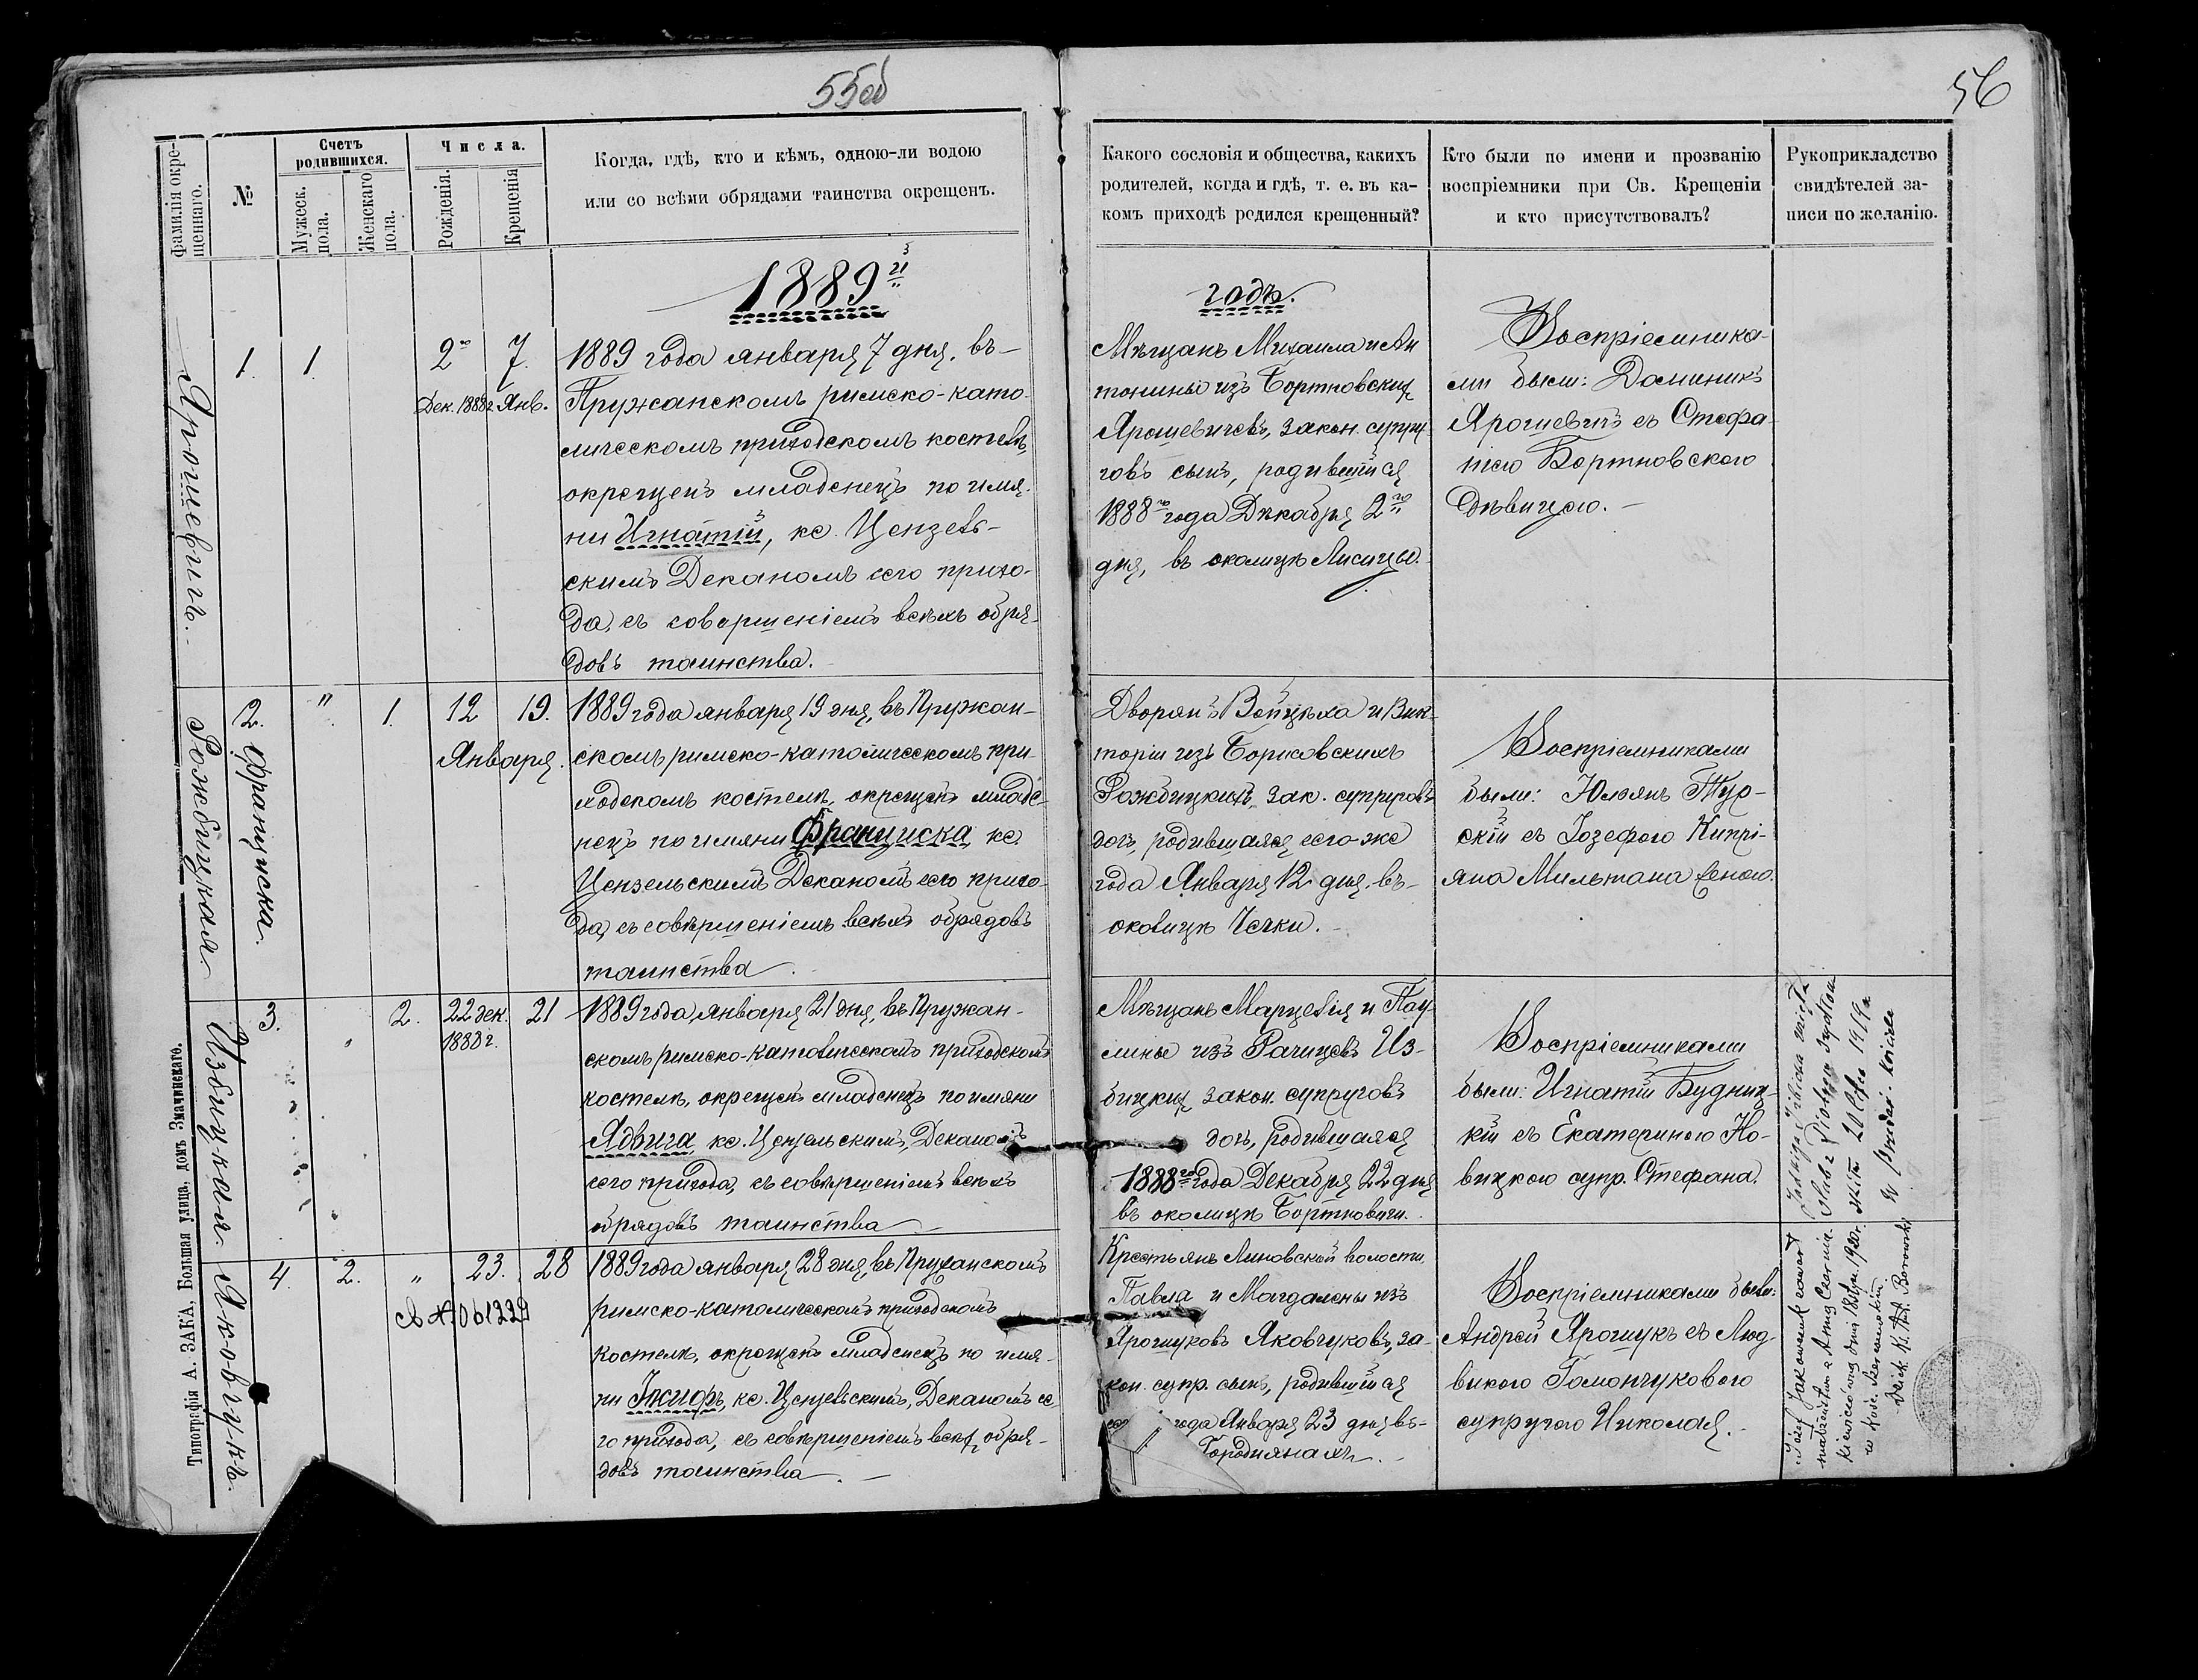 55об
56
Фамилія окре-
щеннаго.
№
Счетъ
родившихся.
Мужеск.
пола.
Женскаго
пола.
Числа.
Рожденія.
Крещенія
Когда, гдѣ, кто и кѣмъ, одною-ли водою
или со всѣми обрядами таинства окрещенъ.
Какого сословія и общества, какихъ
родителей, когда и гдѣ, т. е. въ ка-
комъ приходѣ родился крещенный?
Кто были по имени и прозванію
воспріемники при Св. Крещеніи
и кто присутствовалъ?
Рукоприкладство
свидѣтелей за-
писи по желанію.
1889
годъ.
Ярошевичъ.
1.
1.
2го
7.
Дек. 1888 г. Янв.
1889 года января 7 дня, въ
Пружанскомъ римско-като-
лическомъ приходскомъ костелѣ,
окрещенъ младенецъ по имя-
ни Игнатій, кс. Цензель-
скимъ Деканомъ сего прихо-
да, съ совершеніемъ всѣхъ обря-
довъ таинства.
Мѣщанъ Михаила и Ан
тонины изъ Бортновских
Ярошевичевъ, закон. супру-
говъ сынъ, родившійся
1888го года Декабря 2го
дня, въ околицѣ Лисицы.
Воспріемника-
ми были: Доминикъ
Ярошевичъ съ Стефа-
ніею Бортновского
дѣвицею.
Рожбицкая
2. Франциска.
"
1.
12
19.
Января.
1889 года января 19 дня, въ Пружан-
скомъ римско-католическомъ при-
ходскомъ костелѣ, окрещенъ младе-
нецъ по имяни Франциска, кс.
Цензельскимъ Деканомъ сего прихо-
да, съ совершеніемъ всѣхъ обрядовъ
таинства.
Дворянъ Войцѣха и Вик-
торіи изъ Борисовскихъ
Рожбицкихъ, зак. супруговъ
дочь, родившаяся сего-же
года Января 12 дня, въ
околицѣ Чечки.
Воспріемниками
были: Юльянъ Тур-
скій съ Іозефою Кипрі-
яна
Избицкая.
3.
2.
22 дек.
1888 г.
21
1889 года января 21 дня, въ Пружан-
скомъ римско-католическомъ приходскомъ
костелѣ, окрещенъ младенецъ по имяни
Ядвига, кс. Цензельскимъ, Деканомъ
сего прихода, съ совершеніемъ всѣхъ
обрядовъ таинства
Мѣщанъ Марцелія и Пау-
лины изъ Рачицевъ Из-
бицких закон. супруговъ
дочь, родившаяся
1888го года Декабря 22 дня
въ околицѣ Бортновичи.
Воспріемниками
были: Игнатій Будниц-
кій съ Екатериною Но-
вицкою супр. Стефана.
Jadwiga Izbicka wzięła
ślub z Piotrem
20 1919 r.
w
Яковчукъ.
4.
2.
"
23.
28
1889 года января 28 дня, въ Пружанскомъ
римско-католическомъ приходскомъ
костелѣ, окрещенъ младенецъ по имя-
ни Іосифъ, кс. Цензельскимъ, Деканомъ се-
го прихода, съ совершеніемъ всѣх обря-
довъ таинства.
Крестьянъ Линовской волости
Павла и Магдалены изъ
Ярошуковъ Яковчуковъ, за-
кон. супр. сынъ, родившійся
года Января 23 дня въ
Городнянахъ.
Воспріемниками были:
Андрей Ярошукъ съ Люд-
викою Гомончуковою
супругою Николая.
Józef Jakowczuk zawarł
małżeństwo z Anną
dnia 1920 r.
w Kość.
Dziek. Ks. Ant. Borowski
Типографія А. ЗАКА, Большая улица, домъ Значинскаго.